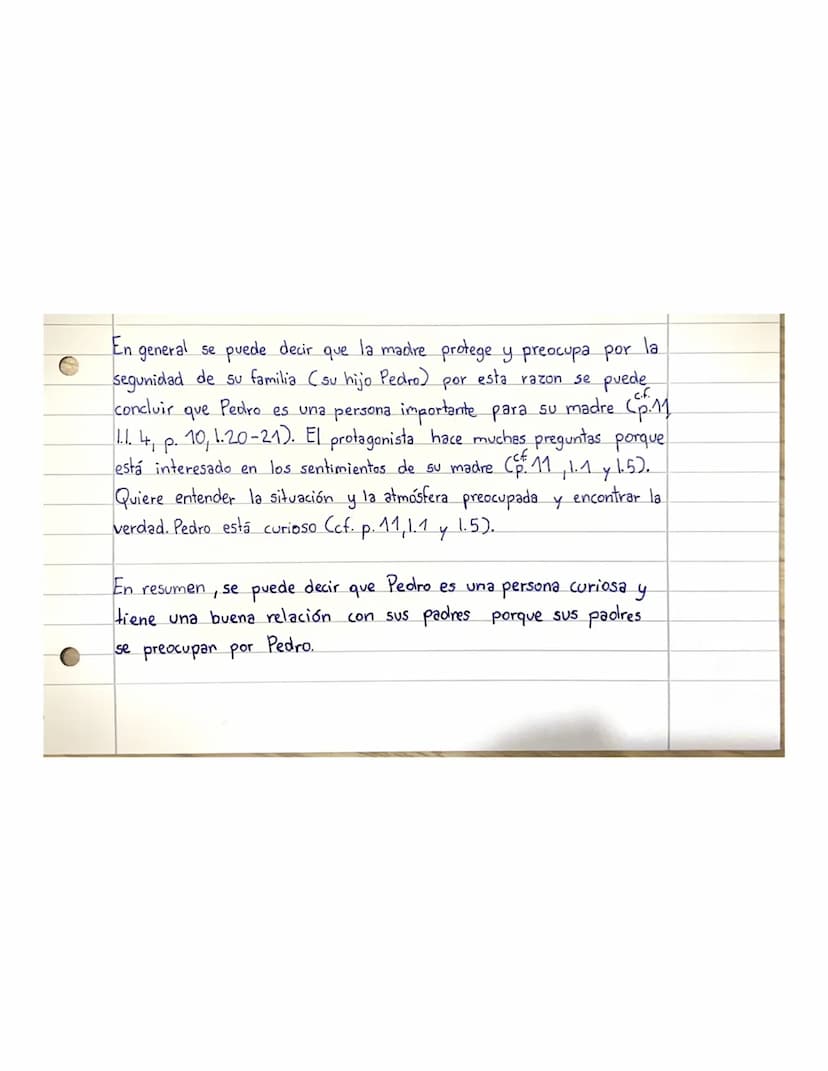 En general se puede decir que la madre protege y preocupa por la
segunidad de su familia (su hijo Pedro) por esta razon se puede
concluir que Pedro es una persona importante para su madre (c.f. p. 11
l.l. 4, p. 10, l. 20-21). El protagonista hace muchas preguntas porque
está interesado en los sentimientos de su madre (cf. p. 11, l. 1 y l. 5).
Quiere entender la situación y la atmósfera preocupada y encontrar la
verdad. Pedro está curioso (cf. p. 11, l. 1 y l. 5).
En resumen, se puede decir que Pedro es una persona curiosa y
tiene una buena relación con sus padres porque sus padres
se preocupan por Pedro.